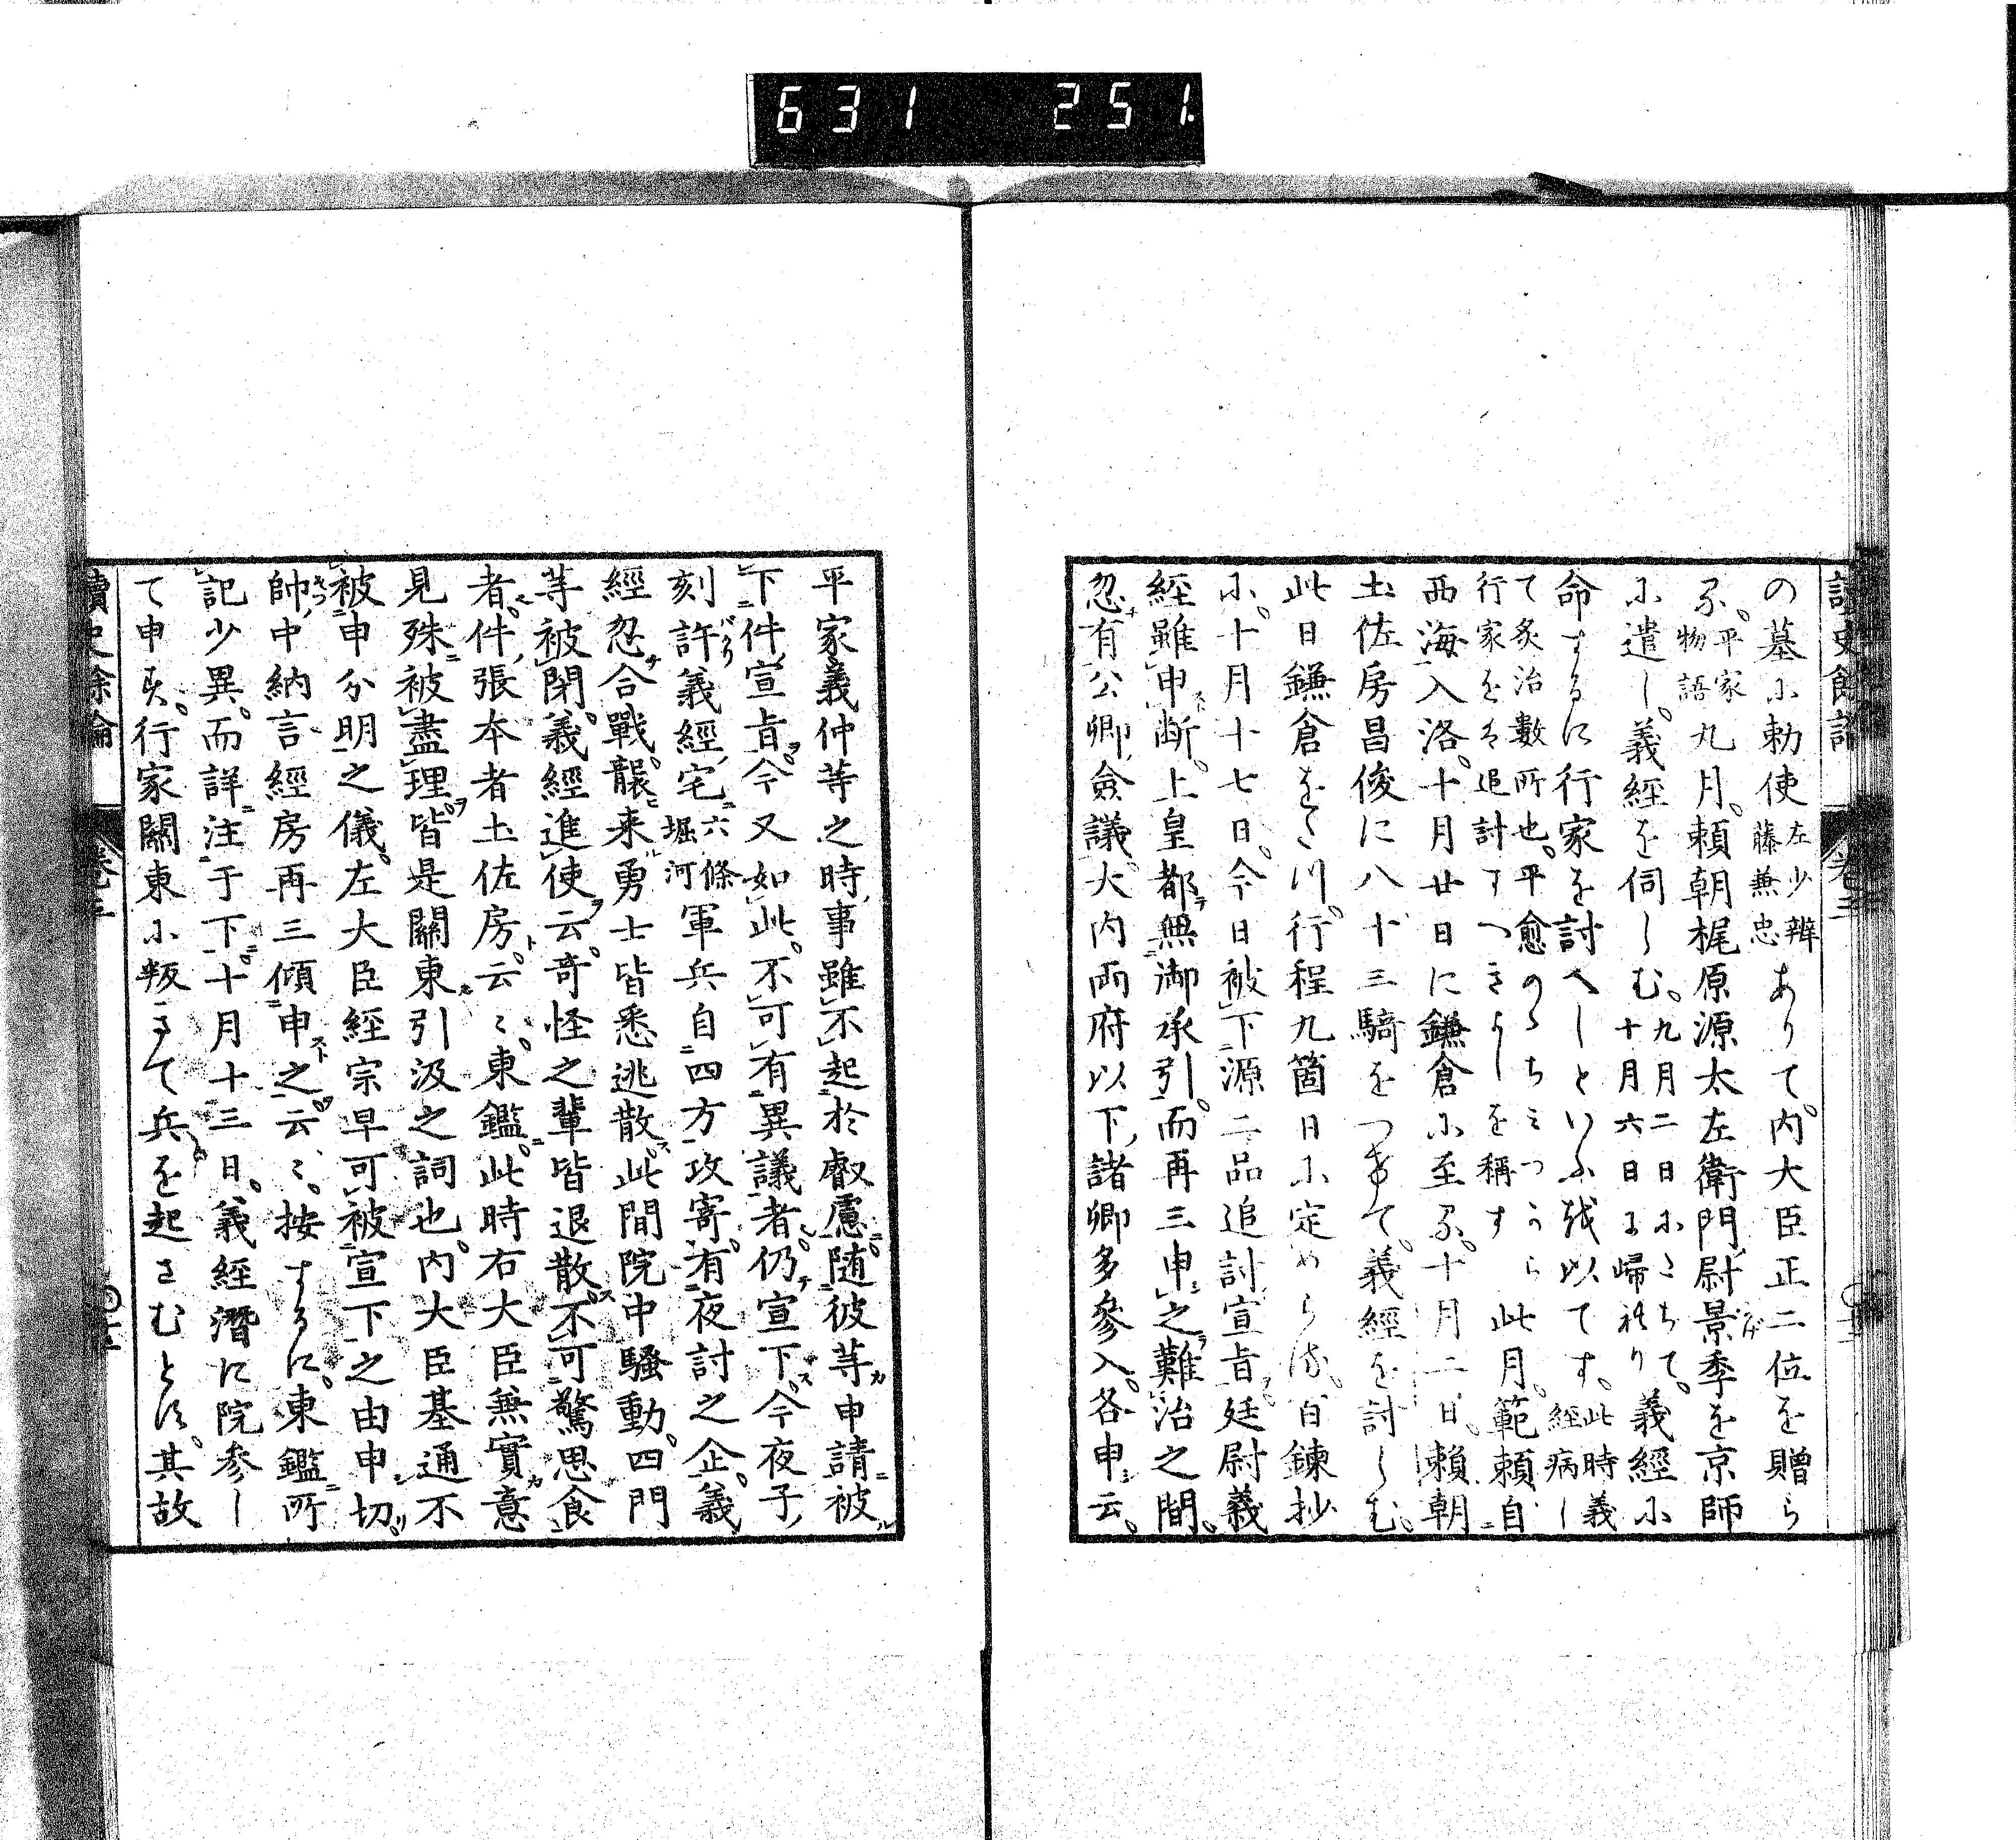 631 251
讀史餘論 卷三
の墓に勅使左少辨藤兼忠ありて。内大臣正二位を贈ら
る。平家物語九月。賴朝梶原源太左衛門尉景季を京師
に遣し。義經を伺しむ。九月二日にたちて。十月六日に歸れり義經に
命するに行家を討へしといふ狀以てす。此時義經病し
て炙治數所也。平愈のゝちみつから行家をは追討すつきよしを稱す此月。範賴自
西海入洛。十月廿日に鎌倉に至る。十月二日。賴朝
土佐房昌俊に八十三騎をつけて。義經を討しむ。
此日鎌倉をたつ。行程九箇日に定めらる。百鍊抄
に。十月十七日。今日被下源二品追討宣旨。廷尉義
經雖申斷。上皇都無御承引。而再三申之難治之間。
忽有公卿僉議。大内兩府以下諸卿多參入。各申云。
平家義仲等之時事雖不起於叡慮。随彼等申請被
下件宣旨。今又如此。不可有異議者。仍宣下。今夜子
刻許義經宅六條堀河軍兵自四方攻寄。有夜討之企。義
經忽合戰。襲来勇士皆悉逃散。此間院中騷動。四門
等被閉。義經進使云。奇怪之輩皆退散。不可驚思食
者。件張本者土佐房。云々。東鑑。此時右大臣兼實意
見殊被盡理。皆是關東引汲之詞也。内大臣基通不
被申分明之儀。左大臣經宗早可被宣下之由申切。
帥中納言經房再三傾申之。云々。按するに。東鑑所
記少異。而詳注于下。十月十三日。義經潛に院參し
て申す。行家關東に叛きて兵を起さむとす。其故
讀史餘論 卷三